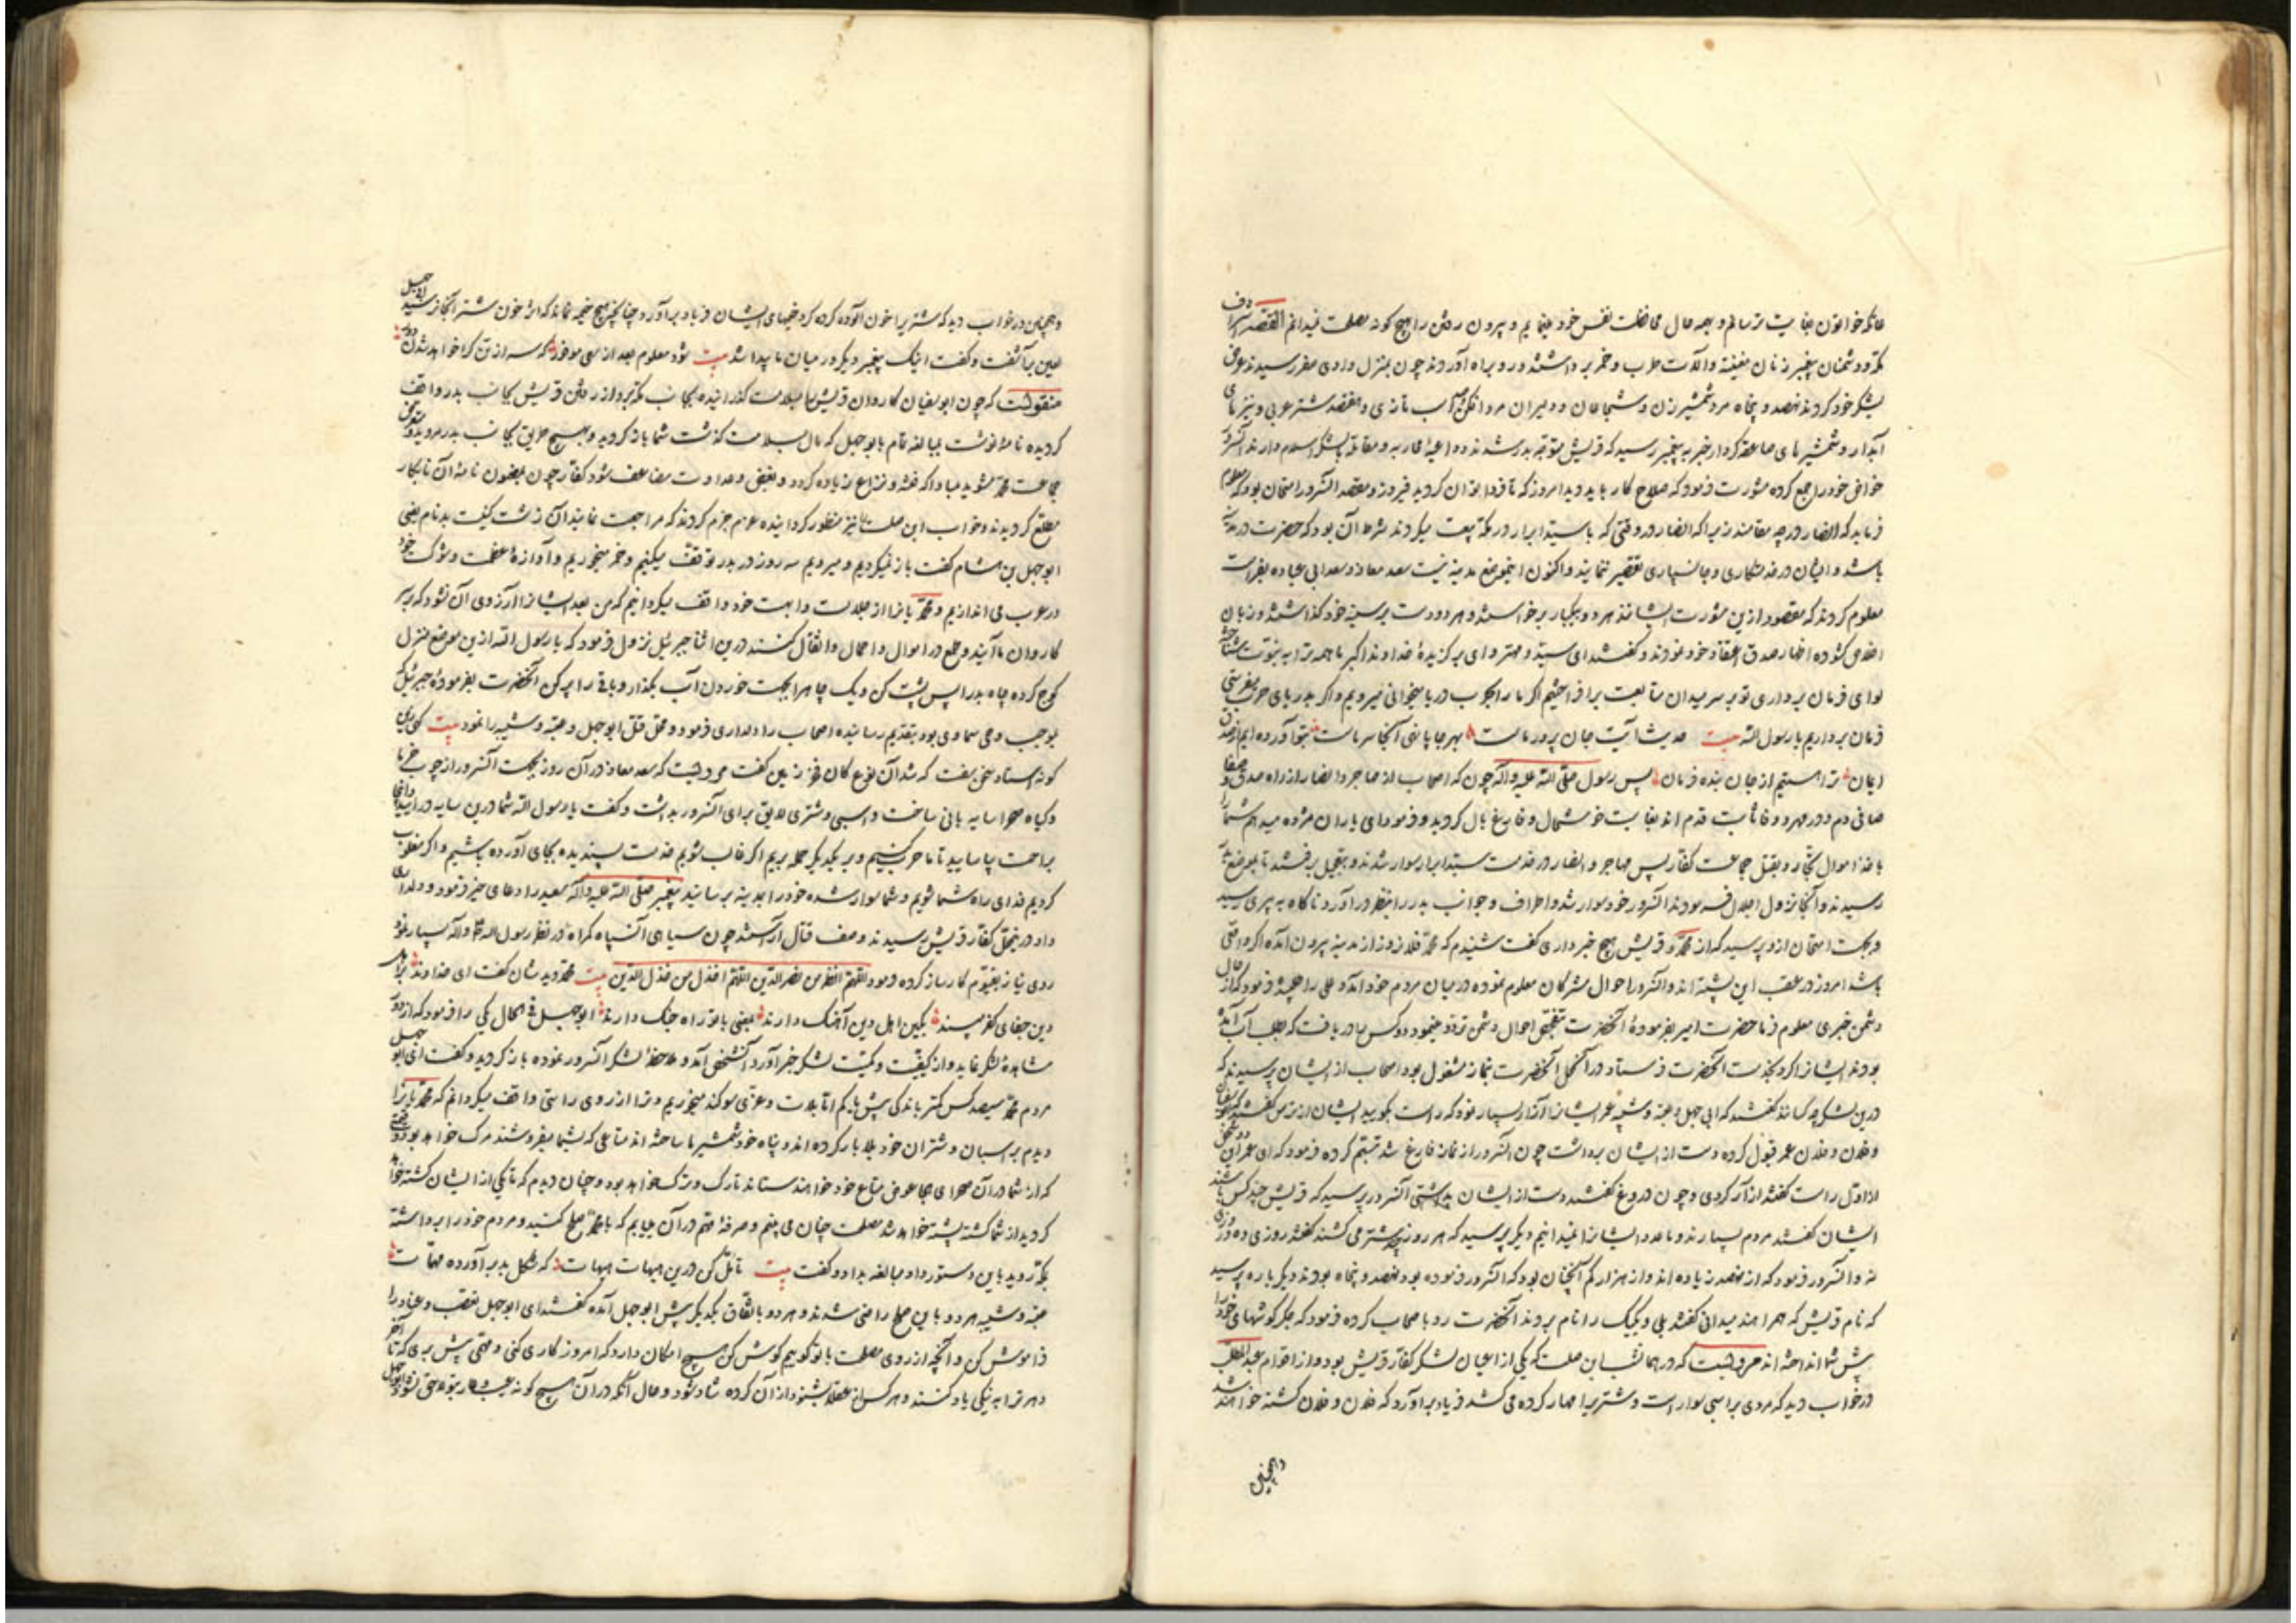 مکه و دشمنان پیغمبر زنان مغنیه و آلات طرب و خمر برداشتند و رو براه آوردند چون بمنزل وادی صفر رسیدند عرض
لشکر خود کردند نهصد و پنجاه مرد شمشیر زن و شجاعان و دلیران مردانکن صد اسب تازی و هفتصد شتر عربی و نیزهای
آبدار و شمشیرهای صاعقه کردار خبر به پیغمبر رسید که قریش متوجه بدر شدند و داعیهٔ محاربه و مقاتله بلشکر اسلام دارند آنسرور
خواص خود را جمع کرده مشورت فرمود که صلاح کار باید دید امروز که تا فردا توان کردید فیروز و مقصد آنسرور امتحان بود که معلوم
فرماید که انصار در چه مقامند زیرا که انصار در وقتی که با سید ابرار در مکه بیعت میکردند شرط آن بود که حضرت در مدینه
باشد و ایشان در خدمتکاری و جانسپاری تقصیر ننمایند و اکنون این موضع مدینه نیست سعد معاذ و سعد ابی عباده بفراست
معلوم کردند که مقصود ازین مشورت ایشانند هر دو بیکبار برخواستند و هر دو دست بر سینه خود گذاشتند و زبان
اخلاص کشوده اظهار صدق اعتقاد خود نمودند و کفتند ای سید و مهتر و ای برگزیدهٔ خداوند اکبر ما همه ترا به نبوت شناخته
لوای فرمان برداری تو بر سر میدان متابعت برافراختیم اگر ما را بحرب دریا بخوانی میرویم و اگر بدریای حرب بفرستی
فرمان برداریم یا رسول الله بیت حدیث آیت جان پرور ماست بهر جا پا نهی آنجا سر ماست بتو آورده ایم از صدق
ایمان ترا هستیم از جان بنده فرمان پس رسول صلی الله علیه وآله چون که اصحاب از مهاجر و انصار از راه صدق و صفا
صافی دم و در مهر و وفا ثابت قدم اند بغایت خوشحال و فارغ بال کردید و فرمود ای یاران مژده میدهم شما را
باخذ اموال تجار و بقتل جماعت کفار پس مهاجر و انصار در خدمت سید ابرار سوار شدند و بتعجیل برفتند تا بموضع بدر
رسیدند و آنجا نزول اجلال فرمودند آنسرور خود سوار شد و اطراف و جوانب بدر را بنظر در آورد ناکاه به پیری رسید
و بجهت امتحان ازو پرسید که از محمد و قریش هیچ خبر داری گفت شنیدم که محمد فلان روز از مدینه بیرون آمده اگر واقعی
باشد امروز در عقب این پشته اند و آنسرور احوال مشرکان معلوم نموده در میان مردم خود آمد و علی را طلبید فرمود که از حال
دشمن خبری معلوم فرما حضرت امیر بفرمودهٔ آنحضرت بتحقیق احوال دشمن تردد مینمود دو کس را دریافت که بطلب آب آمده
بودند ایشانرا کرد بخدمت آنحضرت فرستاد در آنمحل آنحضرت بنماز مشغول بود اصحاب از ایشان پرسیدند که
درین لشکر چه کسانند کفتند که ابی جهل و عتبه و شیبه عمر ایشانرا آزار بسیار نمود که راست بگویید ایشان از ترس کفتند که ابوسفیان
و فلان و فلان عمر قبول کرده دست از ایشان برداشت چون آنسرور از نماز فارغ شد تبسم کرده فرمود که ای عمر این دو شخص
از اول راست کفتند آزار کردی و چون دروغ کفتند دست از ایشان برداشتی آنسرور پرسید که قریش چند کس باشند
ایشان کفتند مردم بسیارند و ما عدد ایشانرا نمیدانیم دیگر پرسید که هر روز چند شتر می کشند کفتند روزی ده و روزی
نه و آنسرور فرمود که از نهصد زیاده اند و از هزار کم آنچنان بود که آنسرور فرموده بود نهصد و پنجاه بودند دیگر باره پرسید
که نام قریش که همراهند میدانی کفتند بلی و یکیک را نام بردند آنحضرت رو باصحاب کرده فرمود که جکر کوشهای خود را
پیش شما انداخته اند مرویست که در همانشب ابن صلت که یکی از اعیان لشکر کفار قریش بود و از اقوام عبدالمطلب
در خواب دید که مردی بر اسبی سوار است و شتریرا مهار کرده می کشد فریاد برآورد که فلان و فلان کشته خواهند شد
وهمچنین
وهمچنان در خواب دید که شتریرا خون آلوده کرده کرد خیمهای ایشان فریاد برآورد چنانکه هیچ خیمه نماند که اثر خون شتر آنجا نرسید ابوجهل
لعین برآشفت و کفت اینک پیغمبر دیگر در میان ما پیدا شد بیت شود معلوم بعد از سعی موفور که سر از تن کرا خواهد شدن دور
منقولست که چون ابوسفیان کاروان قریش را بسلامت گذرانیده بجانب مکه برد از رفتن قریش بجانب بدر واقف
کردیده نامه نوشت بمبالغه تمام بابوجهل که مال بسلامت گذشت شما باز کردید و بهیچ طریق بجانب بدر مروید و متعرض
جماعت محمد مشوید مبادا که فتنه و نزاع زیاده کردد و بغض و عداوت مضاعف شود کفار چون بمضمون نامه آن نابکار
مطلع کردیدند و خواب ابن صلت را نیز منظور کردانیده عزم جزم کردند که مراجعت نمایند آن زشت کنیت بدنام یعنی
ابوجهل بن هشام کفت باز نمیکردیم و میرویم سه روز در بدر توقف میکنیم و خمر میخوریم و آوازهٔ عظمت و شوکت خود
در عرب می اندازیم و محمد یانرا از جلالت و ابهت خود واقف میکردانیم که من بعد ایشانرا آرزوی آن نشود که بر سر
کاروان ما آیند و طمع در اموال و احمال و اثقال کنند درین اثنا جبرئیل نزول فرمود که یا رسول الله ازین موضع منزل
کوچ کرده چاه بدر را پس پشت کن و یک چاه را بجهت خوردن آب بگذار و باقی را پر کن آنحضرت بفرمودهٔ جبرئیل که
بموجب وحی سماوی بود بتقدیم رسانیده اصحاب را دلداری فرمود و محل قتل ابوجهل و عتبه و شیبه را نمود بیت
مرویست که سعد معاذ در آن روز بجهت آنسرور از چوب خرما
و کیاه صحرا سایه بانی ساخت و اسبی و شتری لایق برای آنسرور بداشت و کفت یا رسول الله شما درین سایه درآیید و آنجا
براحت بیاسایید تا ما حرب کنیم و بر یکدیگر حمله بریم اگر غالب شویم خدمت پسندیده بجای آورده باشیم و اگر مغلوب
کردیم فدای راه شما شویم و شما سوار شده خود را بمدینه برسانید پیغمبر صلی الله علیه وآله سعد را دعای خیر فرمود و دلداری
داد در نمحل کفار قریش رسیدند و صف قتال آراستند چون سیاهی آن سپاه کمراه در نظر رسول الله وآله بسیار نمود
روی نیاز بقیوم کارساز کرده فرمود اللهم انصر من نصر الدین اللهم اخذل من خذل الدین بیت محمد دید شان کفت ای خداوند
دین جفای کفر مپسند بکین اهل دین آهنگ دارند بمعنی با تو راه جنگ دارند ابوجهل فی الحال یکی را فرمود که از دور
مشاهدهٔ لشکر نماید و از کیفیت و کمیت لشکر خبر آورد آنشخص آمد و ملاحظهٔ لشکر آنسرور نموده باز کردید و کفت ای ابوجهل
مردم محمد سیصد کس کمتر باشد اما بلات و عزی سوکند میخوریم و ترا از روی راستی واقف میکردانم که محمد یانرا
دیدم بر اسبان و شتران خود بلا بار کرده اند و پناه خود شمشیر را ساخته اند متاعی که بشما بفروشند مرک خواهد بود و قیمتی
که از شما در آن صحرای هیجا عوض متاع خود خواهند ستاند تارک و ترک خواهد بود و چنان دیدم که تا یکی از ایشان کشته خواهد
کردید از شما کشته پشته خواهد شد مصلحت چنان می بینم و صرفه هم در آن مییابم که با محمد صلح کنید و مردم خود را برداشته
بمکه روید باین دستور داد مبالغه بداد و کفت بیت تامل کن درین هیهات هیهات که مشکل بدبر آورده مهمات
عتبه و شیبه هر دو باین صلح راضی شدند و هر دو باتفاق یکدیگر پیش ابوجهل آمده کفتند ای ابوجهل تعصب و عناد را
فراموش کن و آنچه از روی مصلحت با تو گوییم گوش کن هیچ امکان دارد که امروز کاری کنی و مهمی پیش بری که تا آخر
دهر ترا به نیکی یاد کنند و هر کس از عقلا بشنود از آن کرده شاد شود و حال آنکه در آن هیچ گونه عیب و عار بتو ملحق نشود ابوجهل